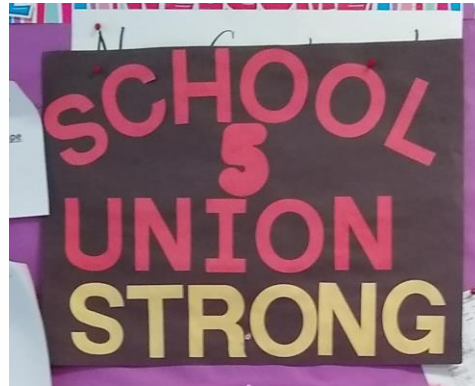 SCHOOL
5
UNION
STRONG